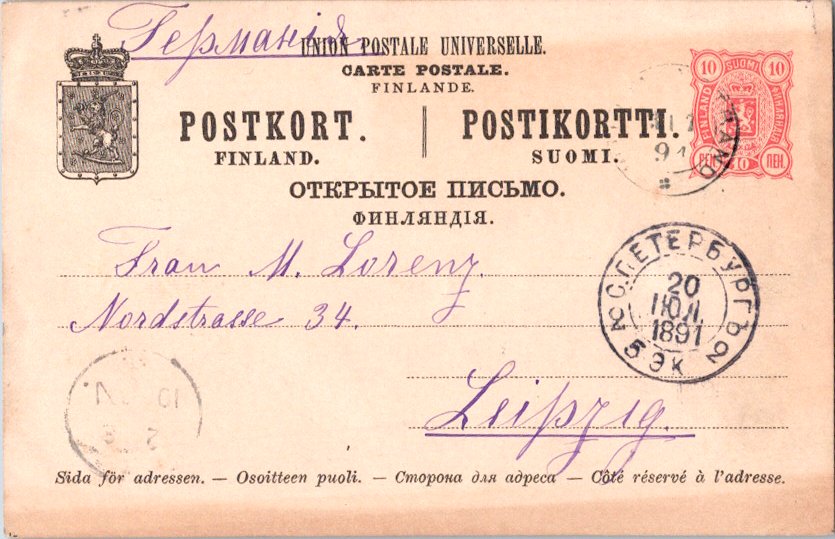 Германія
UNION POSTALE UNIVERSELLE.
CARTE POSTALE.
FINLANDE.
POSTKORT. POSTIKORTTI.
FINLAND. SUOMI.
ОТКРЫТОЕ ПИСЬМО.
ФИНЛЯНДІЯ.
10 SUOMI 10
FINLAND
PEN 10 ПЕН.
91
Frau M. Lorenz.
Nordstrasse 34.
Leipzig.
С.ПЕТЕРБУРГЪ 2
20
ІЮЛ.
1891
5 ЭК
Sida för adressen. — Osoitteen puoli. — Сторона для адреса — Côté réservé à l'adresse.